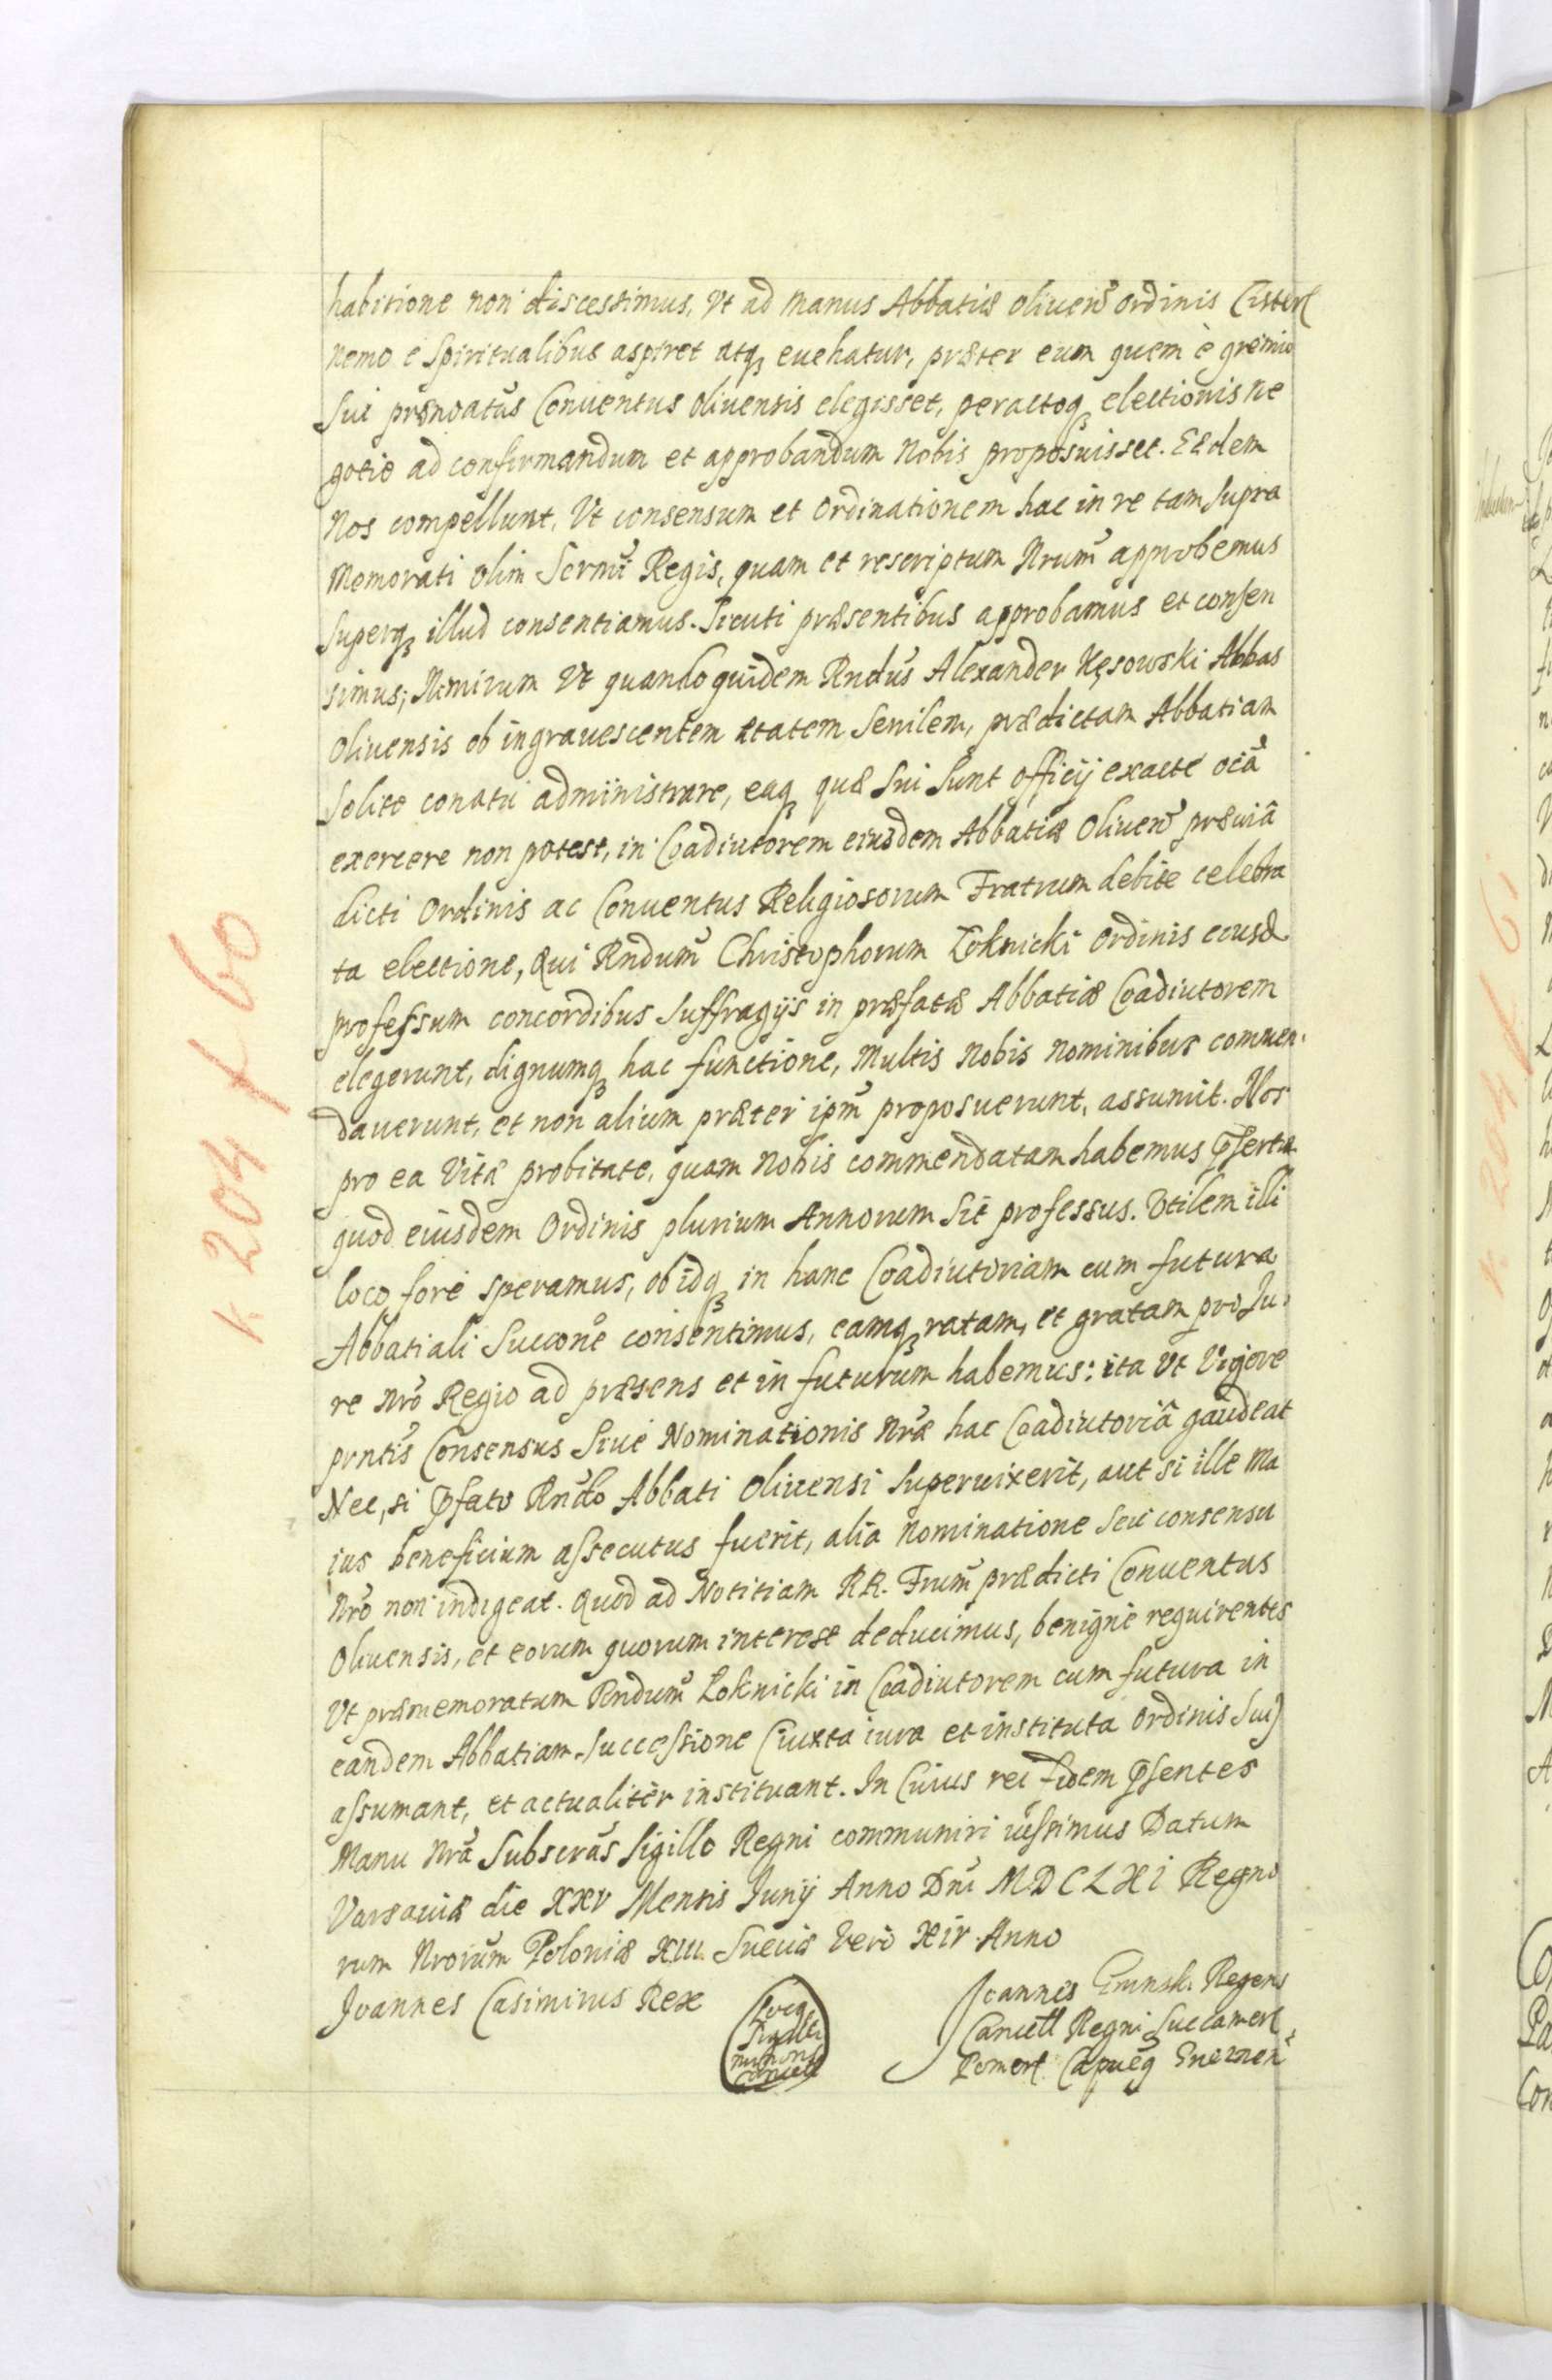 habitione non discessimus, Vt ad manus Abbatiæ oliuens̃ ordinis Cister
nemo è Spiritualibus aspiret atq́ euehatur, præter eum quem è gremio
Sui prænoatus Conuentus oliuensis elegisset, peractoq́ electionis ne
gotio ad confirmandum et approbandum Nobis proposuisset. Eædem
Nos compellunt, Vt consensum et ordinationem hac in re tam supra
memorati olim Sermi Regis, quam et rescriptum Nrum approbemus
Superq́ illud consentiamus. Sicuti præsentibus approbamus et consen
simus; Nimirum Vt quandoquidem Rndus Alexander Kęsowski Abbas
Oliuensis ob ingrauescentem ætatem Senilem, prædictam Abbatiam
Solite conatu administrare, eaq́ quæ Sui Sunt officij exacte oĩa
exercere non potest, in Coadiutorem eiusdem Abbatiæ Oliuen̄ præuiâ
dicti Ordinis ac Conuentus Religiosorum Fratrum debite celebra
ta electione, Qui Rndum Christophorum Łoknicki ordinis eiusd
professum concordibus Suffragijs in præfatæ Abbatiæ Coadiutorem
elegerunt, dignumq́ hac functione, Multis nobis nominibus commen
dauerunt, et non alium præter ipm̃ proposuerunt, assumit. Nos
pro ea Vitæ probitate, quam nobis commendatam habemus
quod eiusdem Ordinis plurium Annorum Sit professus. Vtilem illi
loco fore speramus, ob idq́ in hanc Coadiutoriam cum futura
Abbatiali Succone consentimus, eamq́ ratam, et gratam pro Ju
re Nro Regio ad præsens et in futurum habemus: ita Vt Vigore
prntis Consensus Siue Nominationis Nræ hac Coadiutoriâ gaudeat
Nec, si pfato Rndo Abbati Oliuensi Superuixerit, aut si ille ma
ius beneficium assecutus fuerit, alia nominatione seu consensu
Nro non indigeat. Quod ad Notitiam RR. Frum prædicti Conuentus
Oliuensis, et eorum quorum interest deducimus, benigne requirentes
Vt præmemoratum Rndum Łoknicki in Coadiutorem cum futura in
eandem Abbatiam Successione (iuxta iura et instituta ordinis Sui)
assumant, et actualiter instituant. In Cuius rei fidem psentes
Manu Nrâ Subscras Sigillo Regni communiri iussimus Datum
Varsauiæ die XXV Mensis Junij Anno Dni MDCLXI Regno
rum Nrorum Poloniæ XIII Sueciæ Vero XIV Anno
Joannes Casimirus Rex
Locq
Sigilli
minoris
Cancell
Joannes Regens
Cancell Regni Succamer
Pomer
k 204 f 60
k 204 f 61